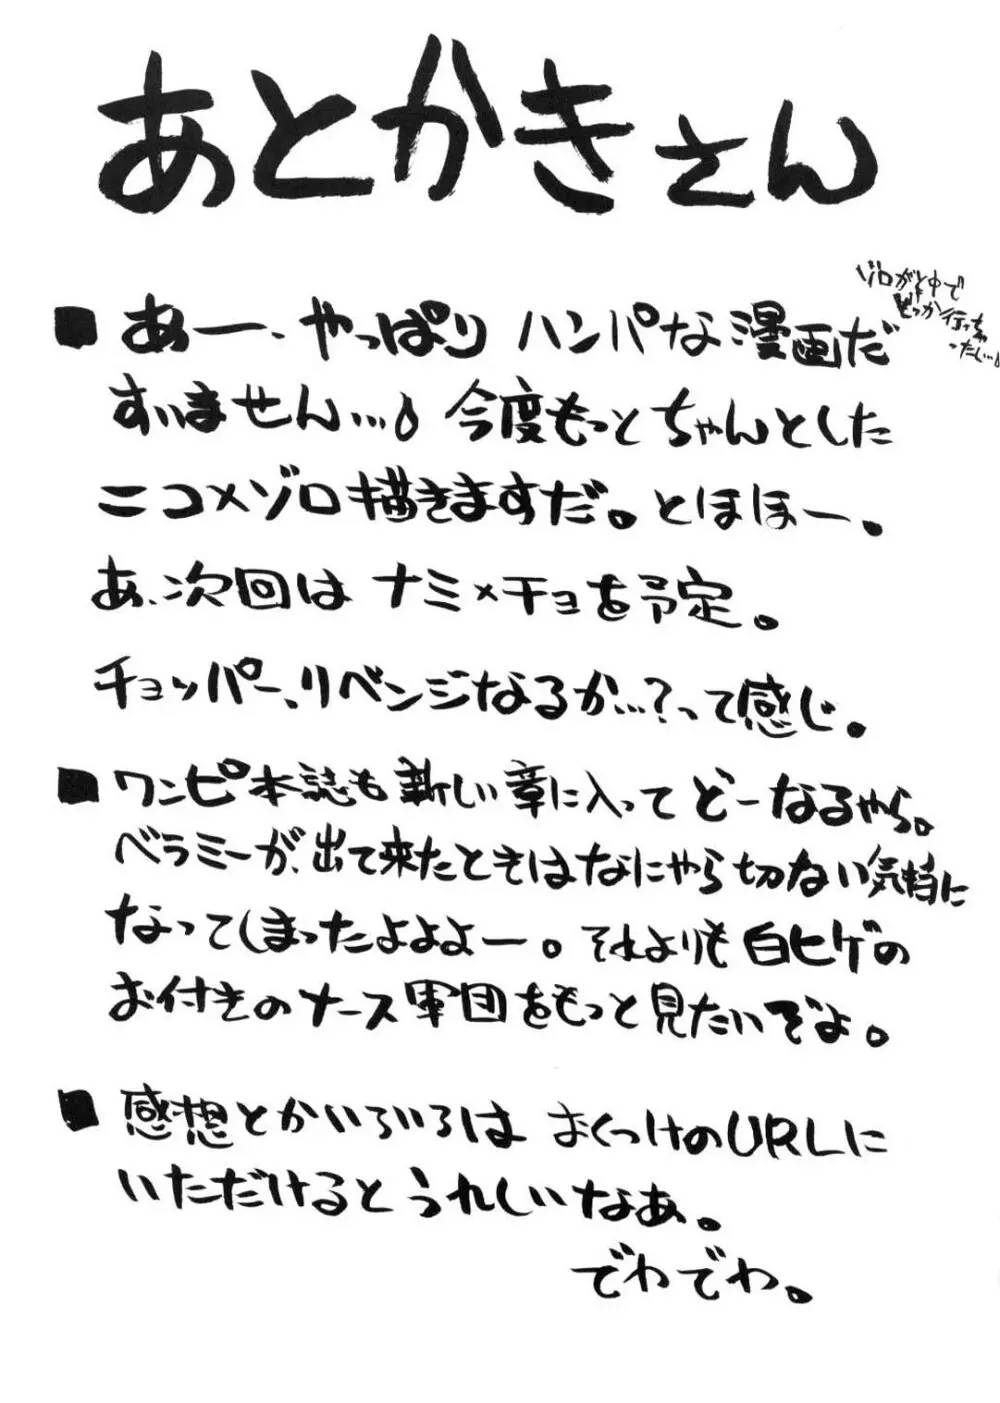 あとかきさん
■ あー、やっぱり ハンパな漫画だ
ゾロが途中で
どっか行っちゃ
ったし…
すいません…。今度もっとちゃんとした
ニコ×ゾロ描きますだ。とほほー。
あ、次回は ナミ×チョを予定。
チョッパー、リベンジなるか…?って感じ。
■ ワンピ本誌も新しい章に入って どーなるやら。
ベラミーが、出て来たときはなにやら切ない気持に
なってしまったよよよー。それよりも白ヒゲの
お付きのナース軍団をもっと見たいぞよ。
■ 感想とかいろいろは おくづけのURLに
いただけると うれしいなあ。
でわでわ。